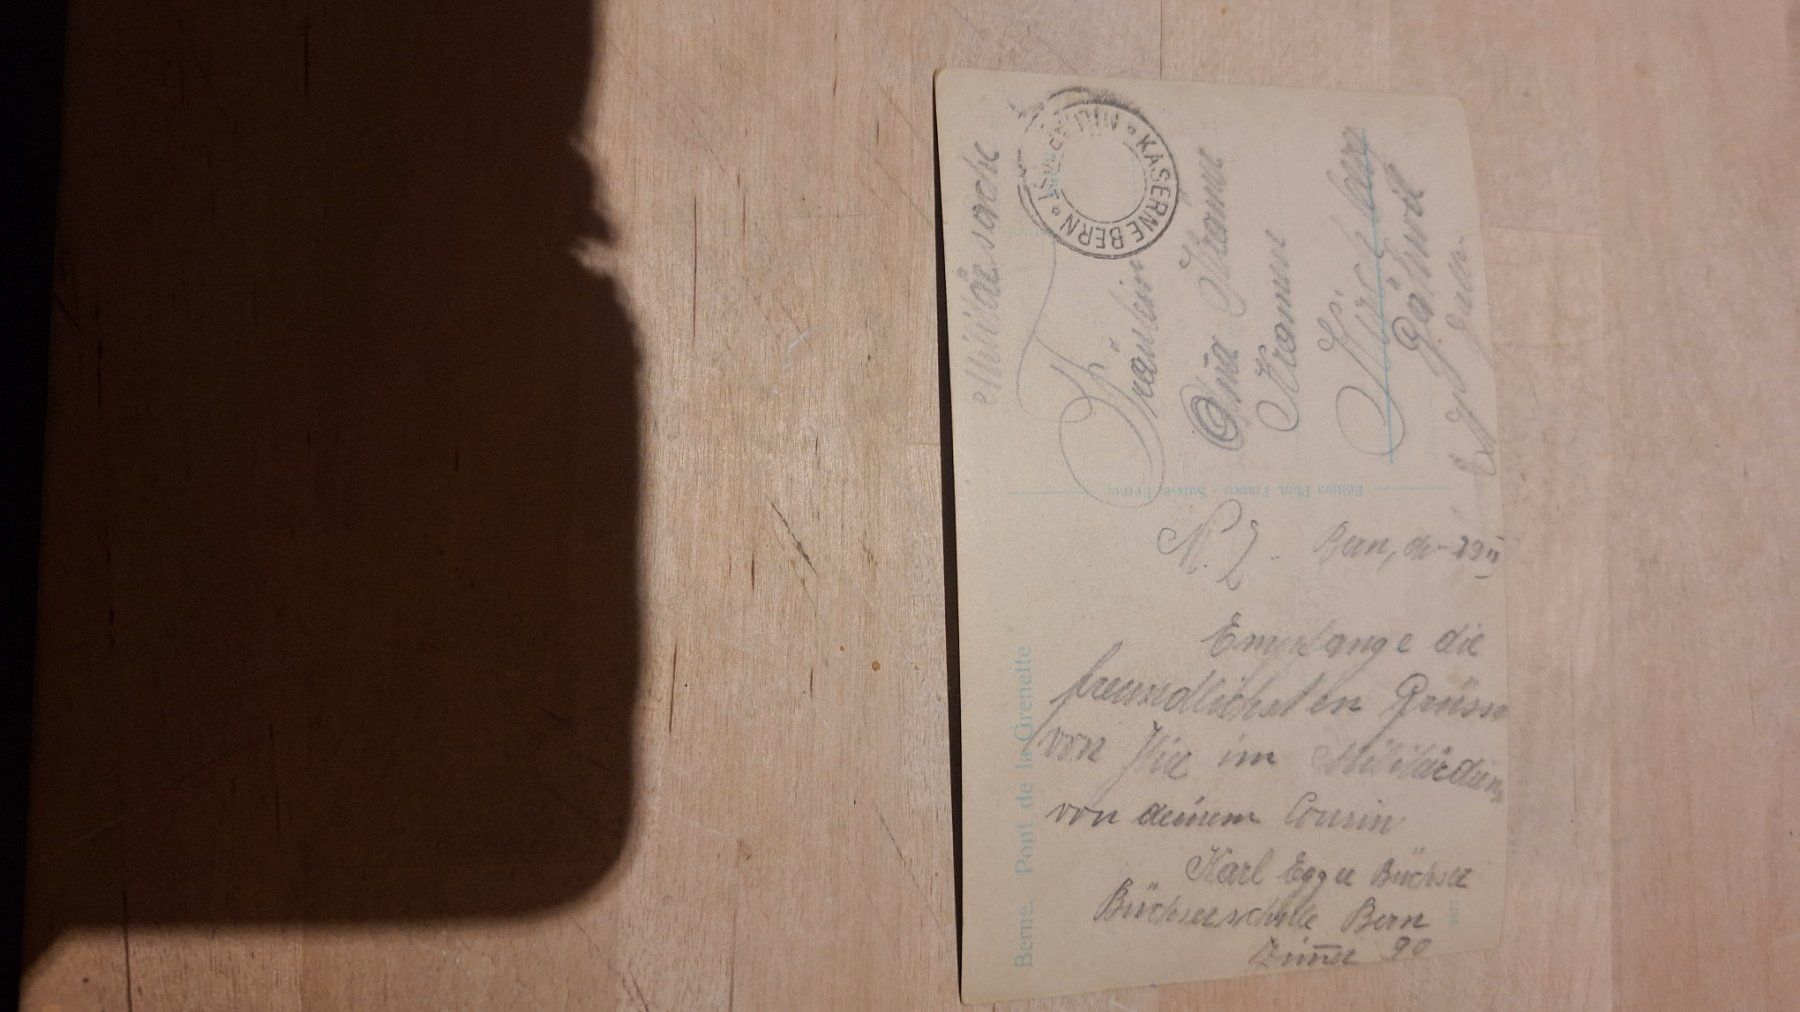 Berne. Pont de la Grenette
N. Z. Bern, den 29
Empfange die
freundlichsten Grüsse
von Hier im Militärdienst
von deinem Cousin
Karl Egger Büchser
Büchserschule Bern
Zim̅er 90
Edition Phot. Franco - Suisse, Berne
Militärsache
KASERNE BERN
Fräulein
Kramer
Kirchberg
Gähwil